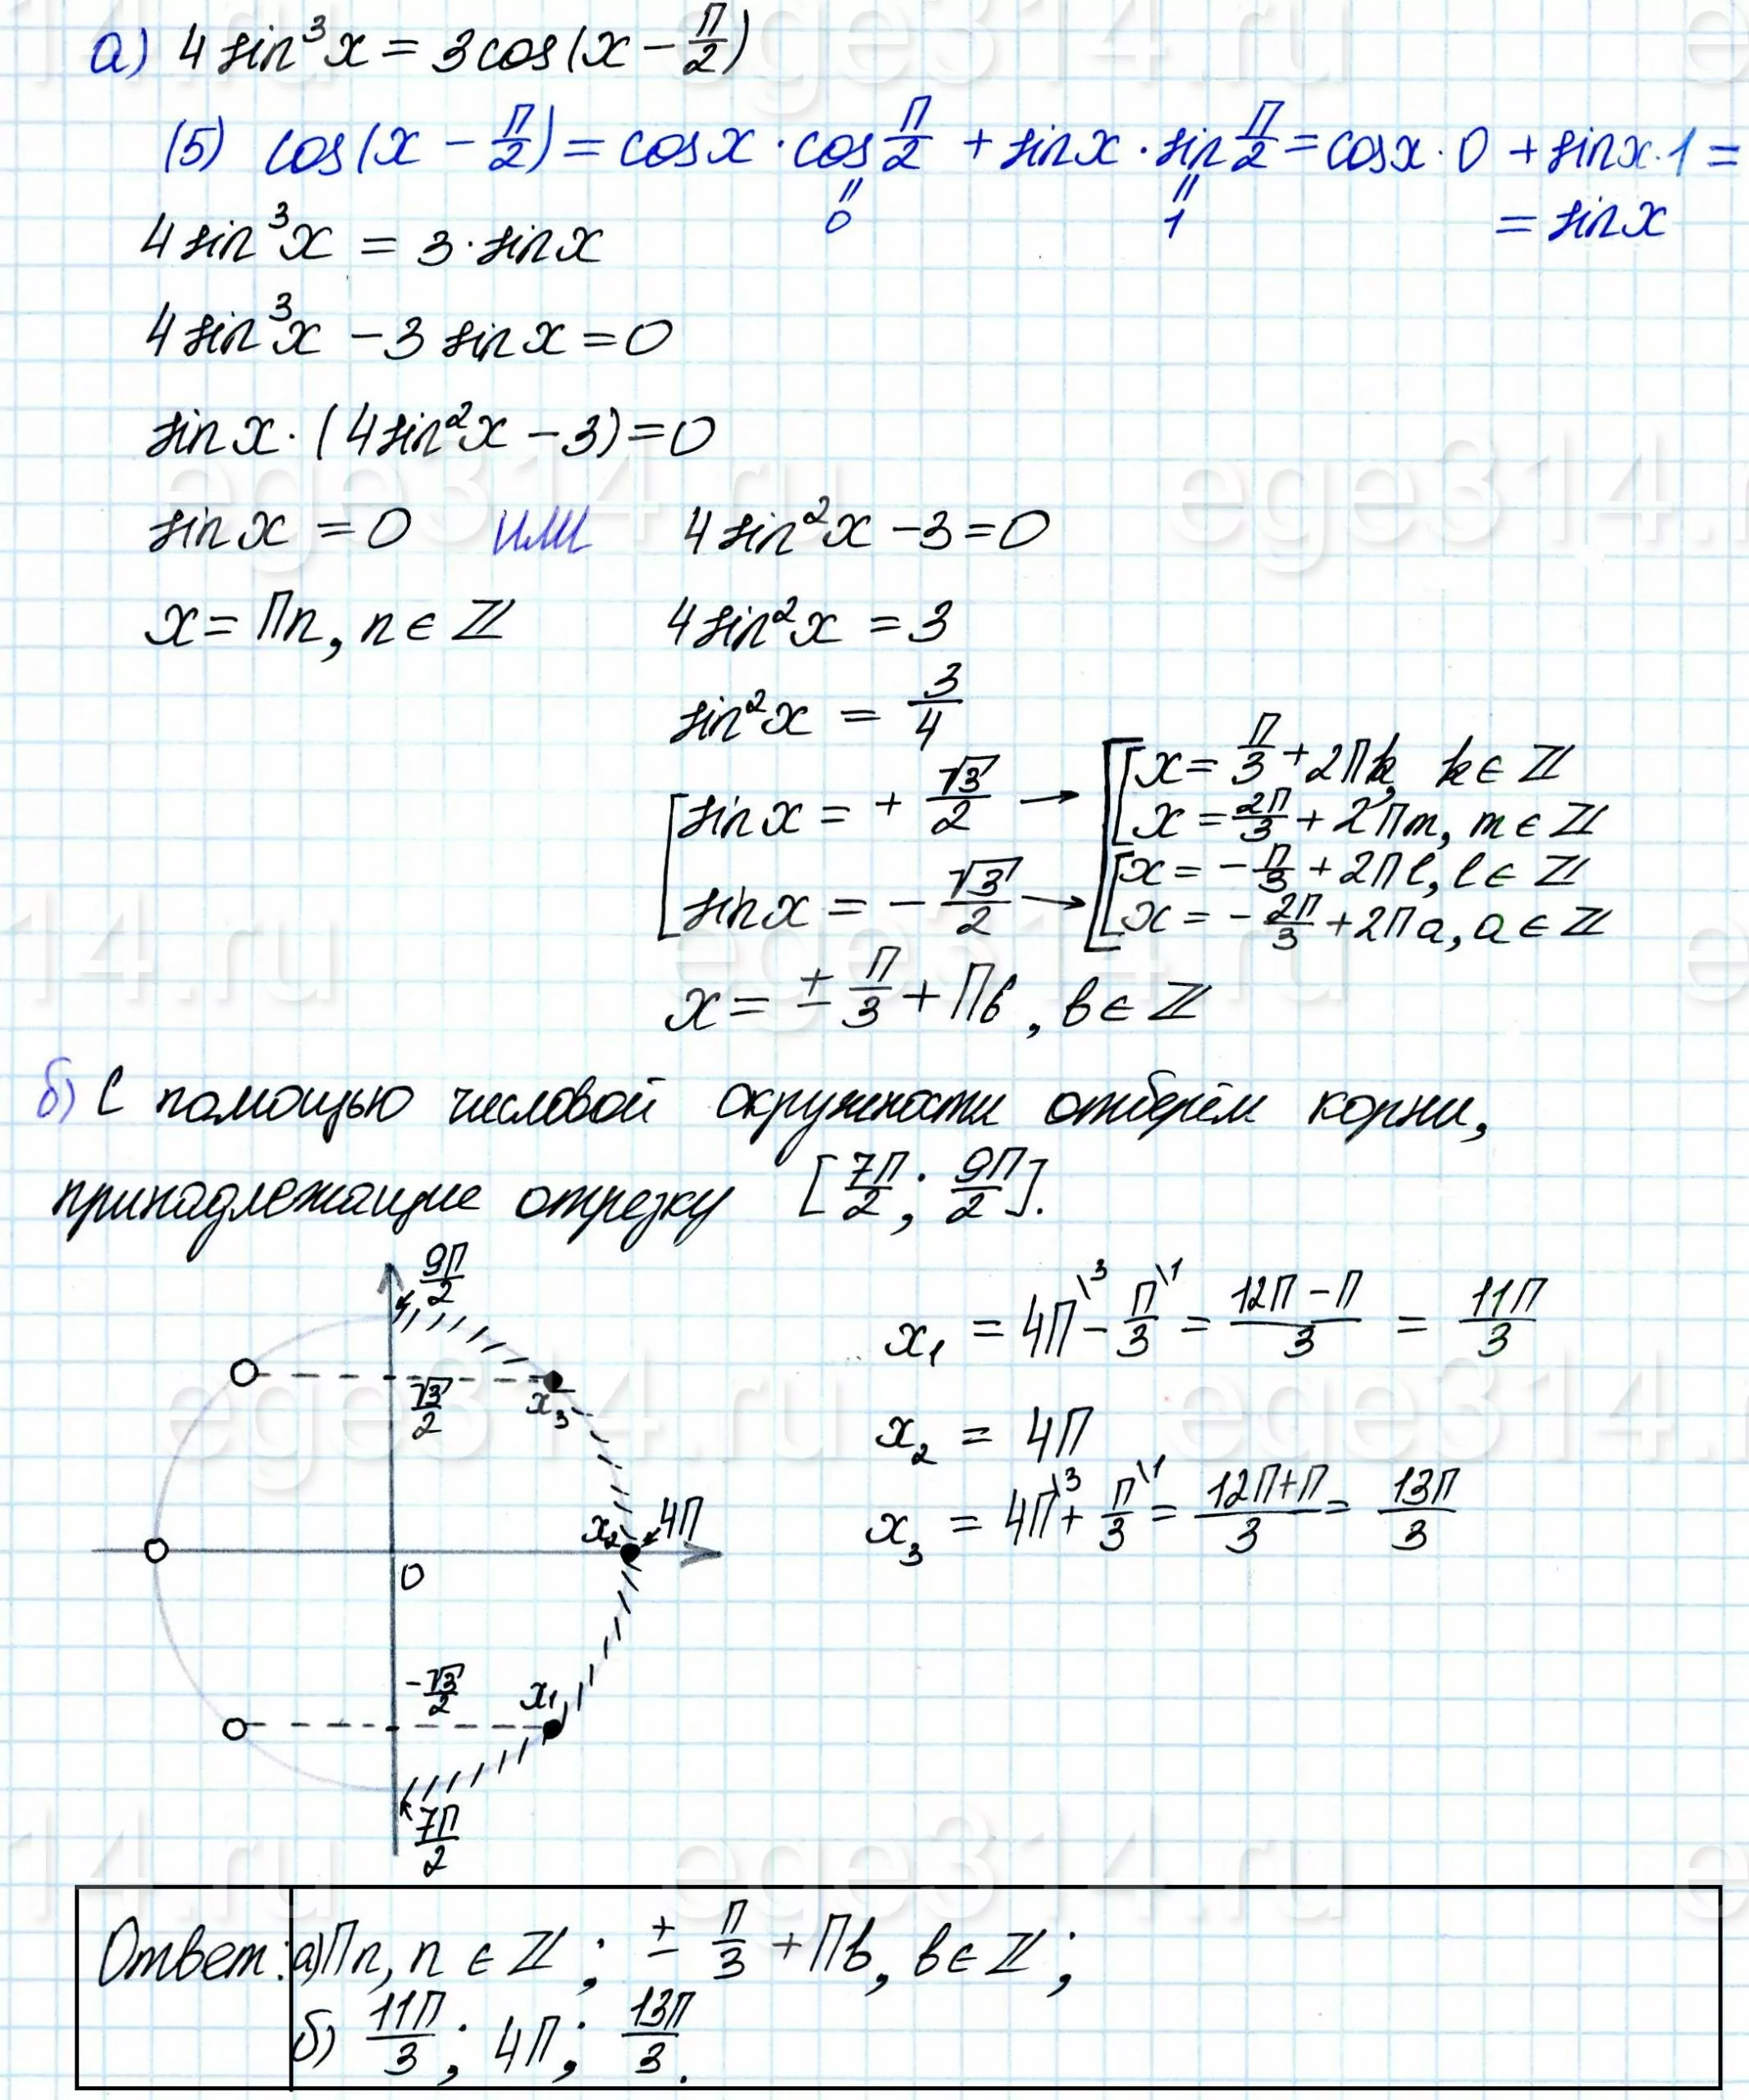 а) 4 sin³x = 3 cos(x − π/2)
(5) cos(x − π/2) = cos x · cos π/2 + sin x · sin π/2 = cos x · 0 + sin x · 1 =
= sin x
0 1
4 sin³x = 3 · sin x
4 sin³x − 3 sin x = 0
sin x · (4 sin²x − 3) = 0
sin x = 0 или 4 sin²x − 3 = 0
x = πn, n ∈ ℤ 4 sin²x = 3
sin²x = 3/4
[ sin x = + √3/2 → [ x = π/3 + 2πk, k ∈ ℤ
x = 2π/3 + 2πm, m ∈ ℤ
sin x = − √3/2 → [ x = − π/3 + 2πl, l ∈ ℤ
x = − 2π/3 + 2πa, a ∈ ℤ
x = ± π/3 + πв, в ∈ ℤ
б) С помощью числовой окружности отберём корни,
принадлежащие отрезку [7π/2; 9π/2].
9π/2
√3/2
x₃
x₂ 4π
0
−√3/2
x₁
7π/2
x₁ = 4π\3 − π/3\1 = 12π − π/3 = 11π/3
x₂ = 4π
x₃ = 4π\3 + π/3\1 = 12π + π/3 = 13π/3
Ответ: а) πn, n ∈ ℤ; ± π/3 + πв, в ∈ ℤ;
б) 11π/3; 4π; 13π/3.
ege314.ru